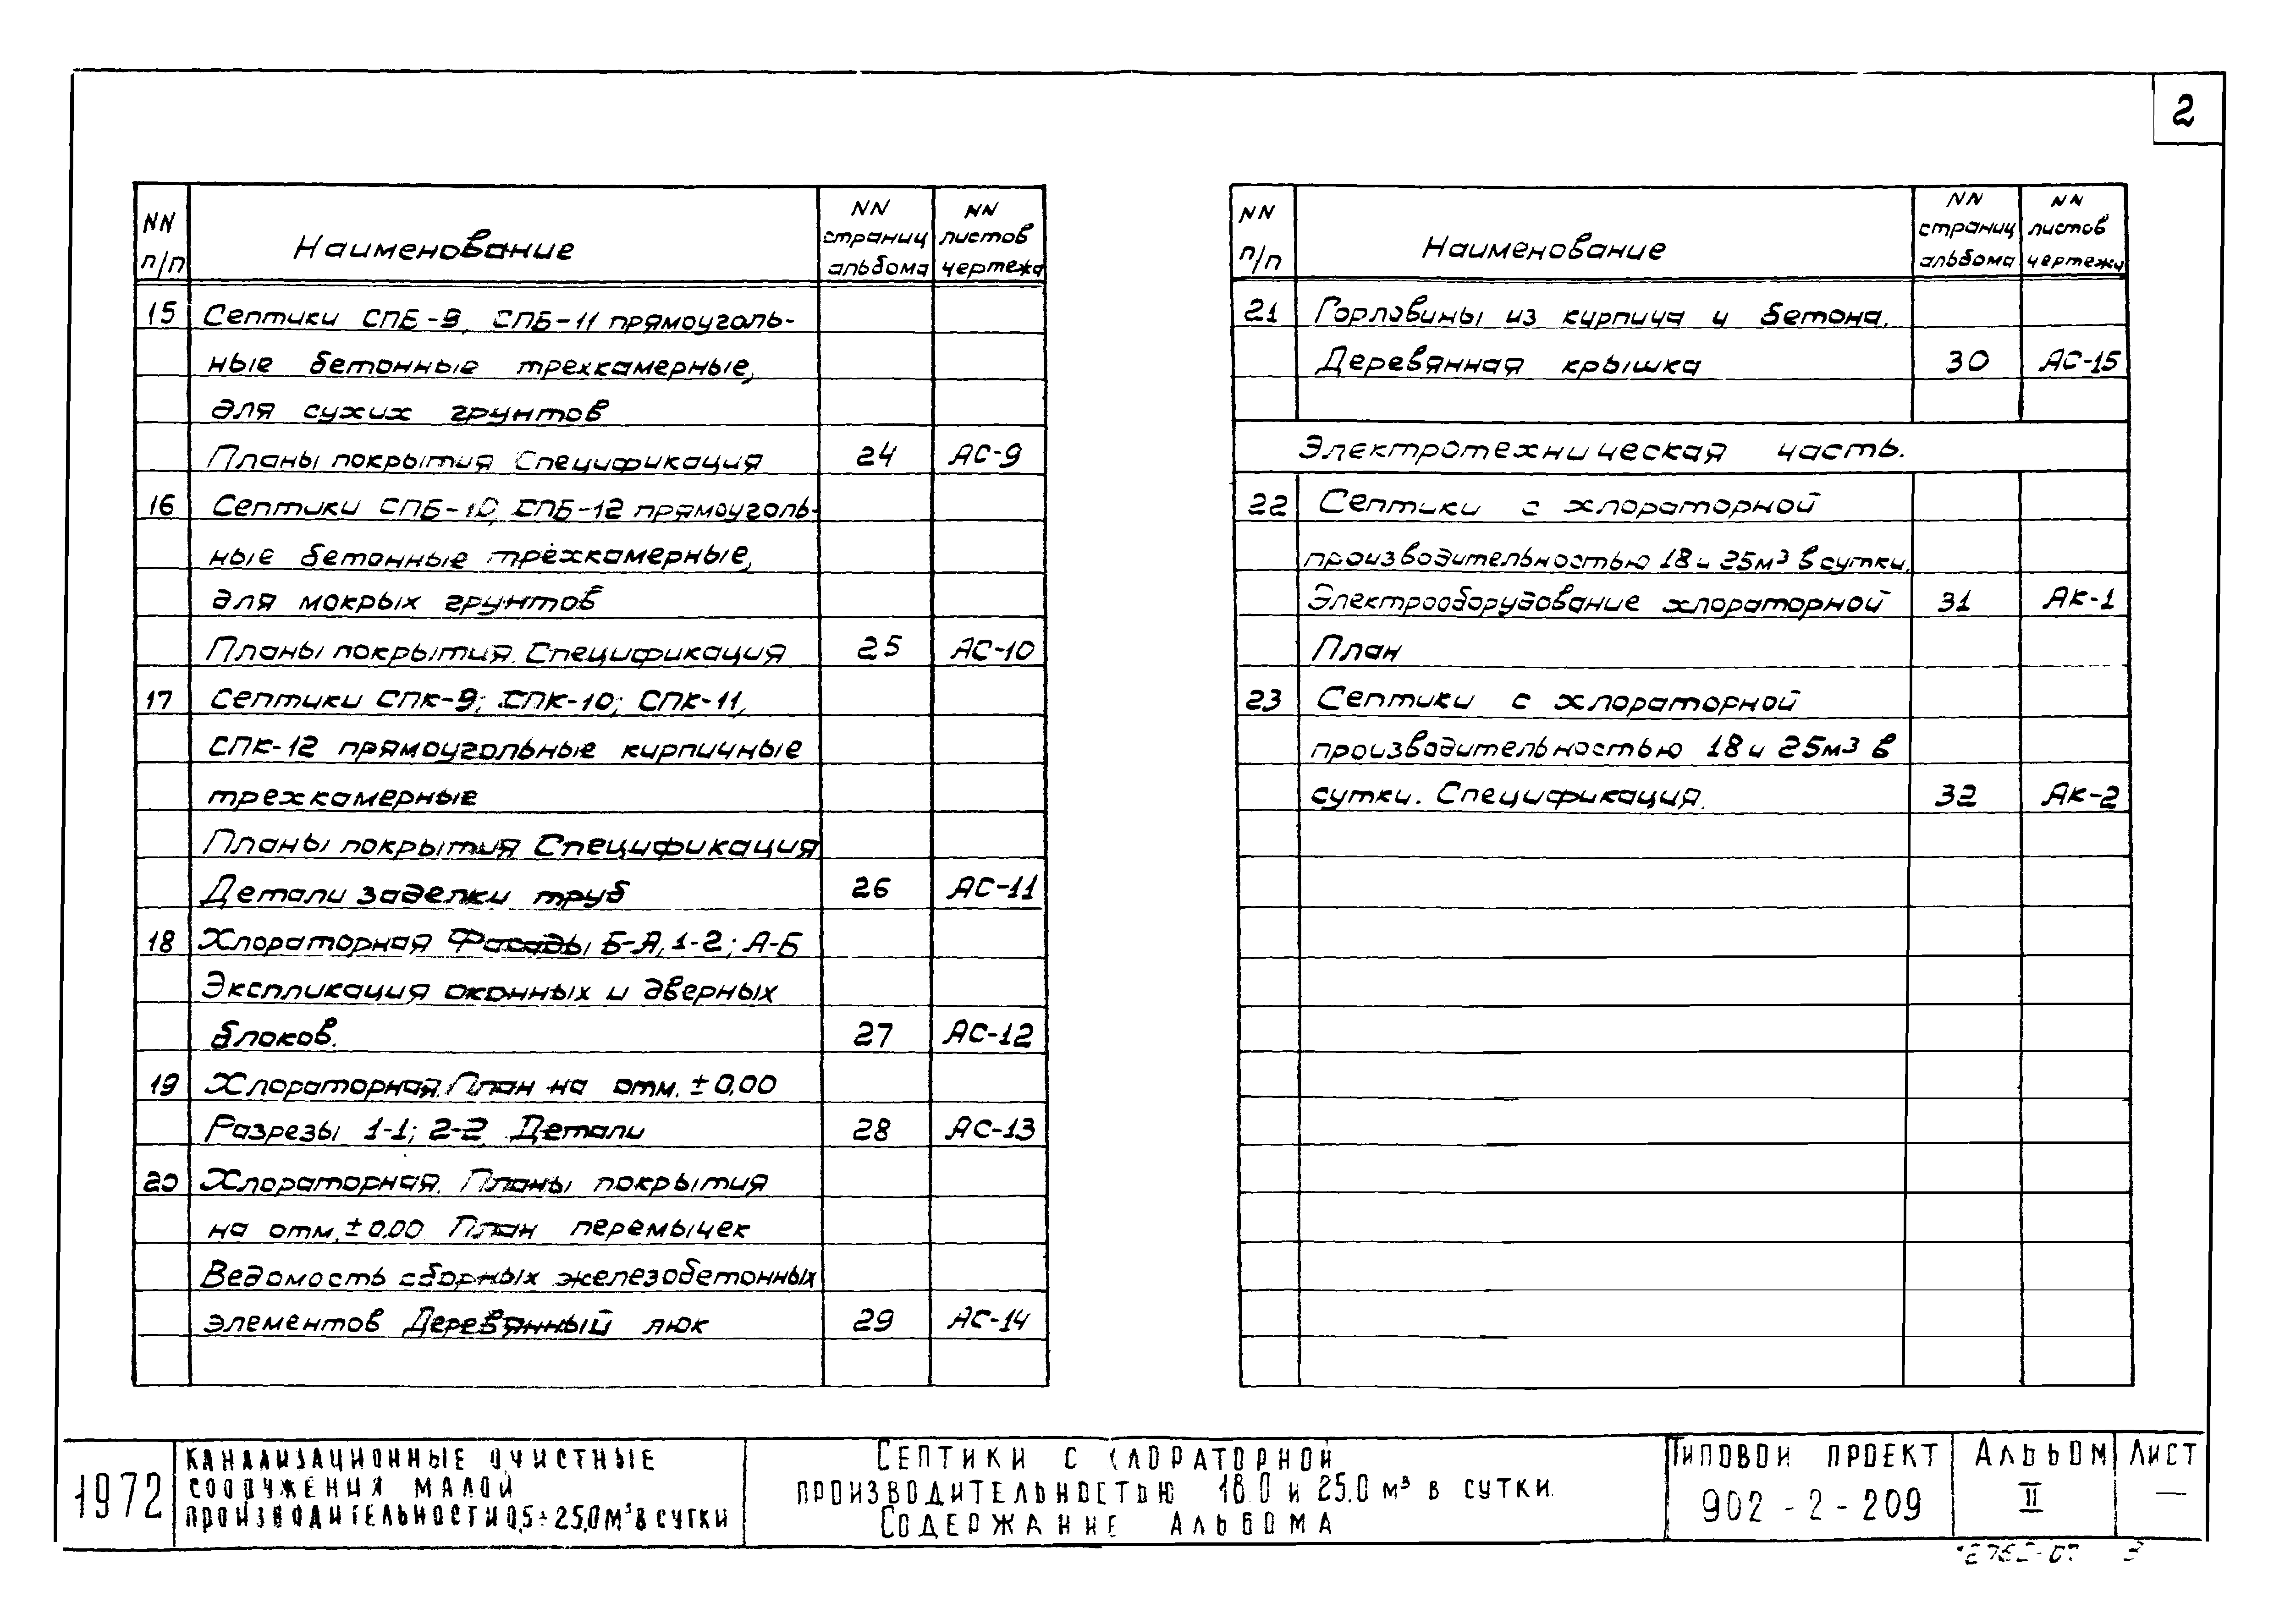 2
NN п/п Наименование NN страниц альбома NN листов чертежа
15 Септики СПБ-9, СПБ-11 прямоуголь-
ные бетонные трехкамерные,
для сухих грунтов
Планы покрытия Спецификация 24 АС-9
16 Септики СПБ-10, СПБ-12 прямоуголь-
ные бетонные трехкамерные,
для мокрых грунтов
Планы покрытия. Спецификация 25 АС-10
17 Септики СПК-9; СПК-10; СПК-11,
СПК-12 прямоугольные кирпичные
трехкамерные
Планы покрытия Спецификация
Детали заделки труб 26 АС-11
18 Хлораторная Фасады Б-А, 1-2; А-Б
Экспликация оконных и дверных
блоков. 27 АС-12
19 Хлораторная. План на отм. ± 0.00
Разрезы 1-1; 2-2 Детали 28 АС-13
20 Хлораторная. Планы покрытия
на отм. ± 0.00 План перемычек
Ведомость сборных железобетонных
элементов Деревянный люк 29 АС-14
NN п/п Наименование NN страниц альбома NN листов чертежа
21 Горловины из кирпича и бетона.
Деревянная крышка 30 АС-15
Электротехническая часть.
22 Септики с хлораторной
производительностью 18 и 25м³ в сутки.
Электрооборудование хлораторной 31 АК-1
План
23 Септики с хлораторной
производительностью 18 и 25м3 в
сутки. Спецификация. 32 АК-2
1972
Канализационные очистные
сооружения малой
производительности 0,5÷25,0 м³ в сутки
Септики с хлораторной
производительностью 18.0 и 25.0 м³ в сутки.
Содержание альбома
Типовой проект
902-2-209
Альбом
II
Лист
—
3